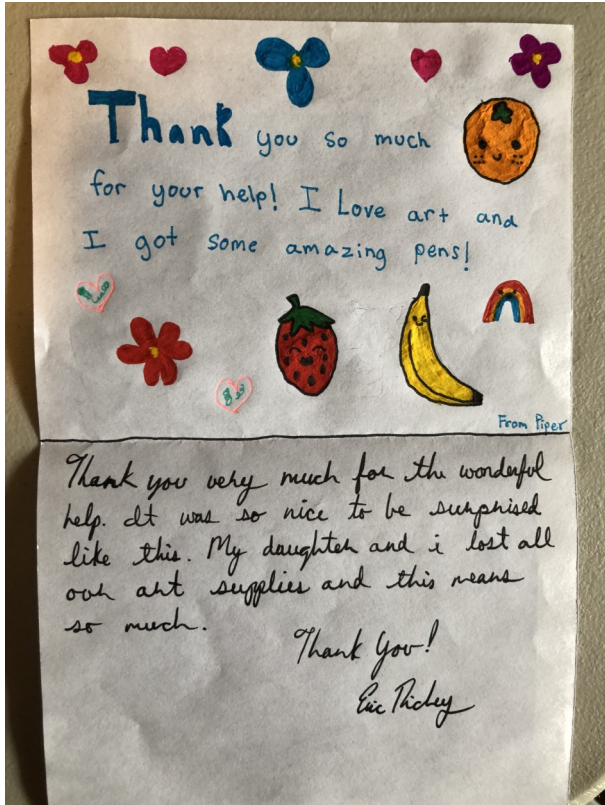 Thank you so much
for your help! I Love art and
I got some amazing pens!
From Piper
Thank you very much for the wonderful
help. It was so nice to be surprised
like this. My daughter and i lost all
our art supplies and this means
so much.
Thank You!
Eric